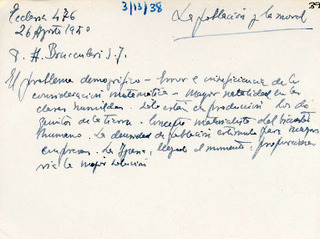 Ecclesia 476
3/13/38
39
26 Agosto 1950
La población y la moral
P. A. Bruculeri S.J.
El problema demográfico - Error e insuficiencia de la
consideración matemática - Mayor natalidad en las
clases humildes.
está en producción. Los
de la tierra. Concepto materialista del
humano. La densidad de población estimula para mayores
empresas. La Iglesia, llegado el momento,
ría la mejor solución